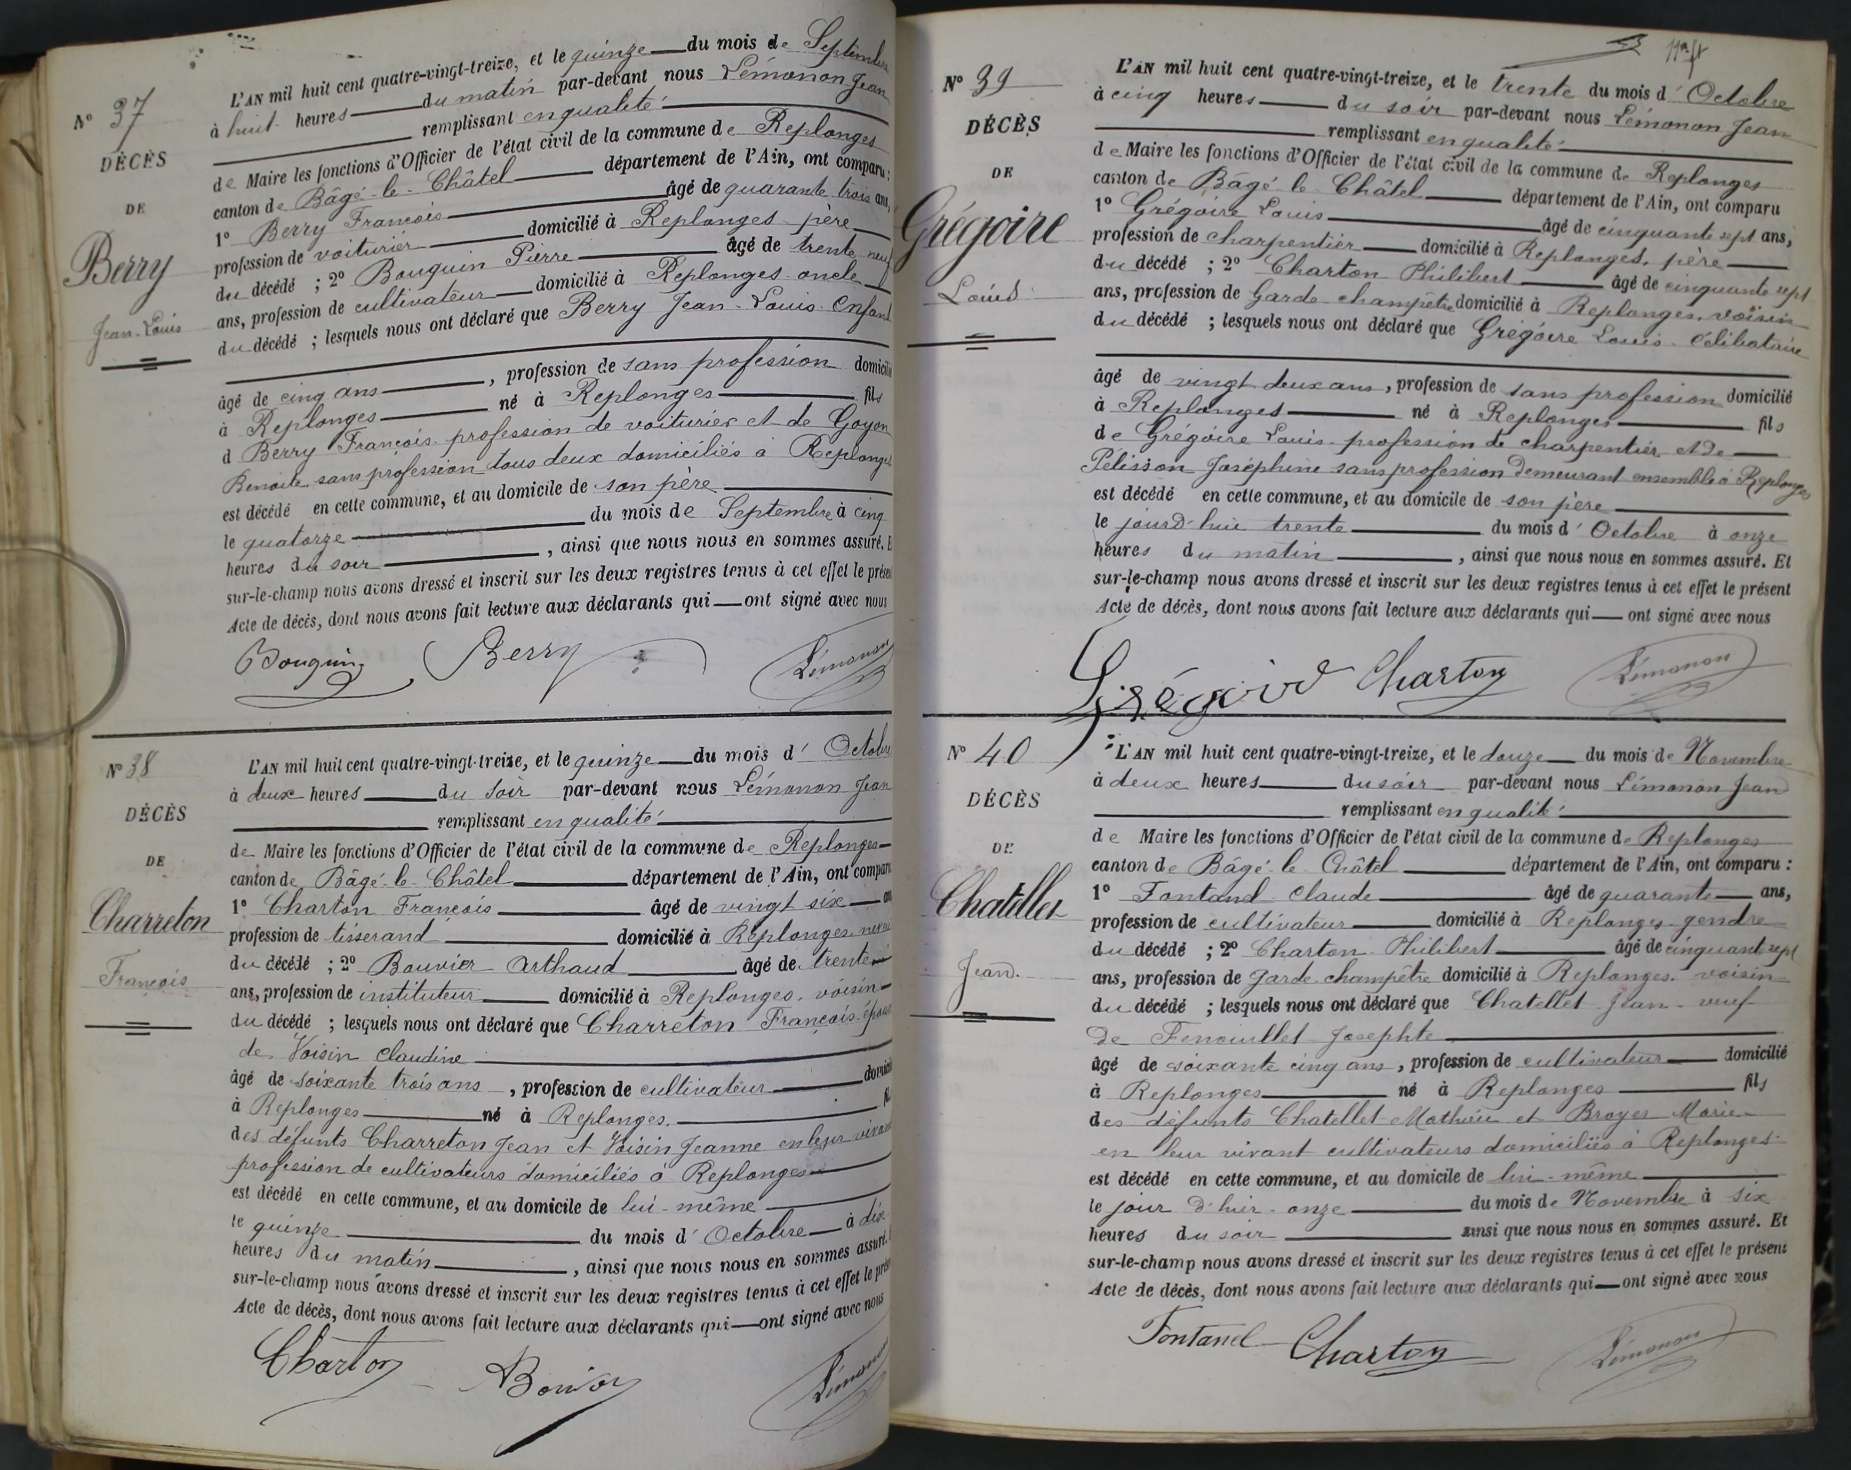 N° 37
DÉCÈS
DE
Berry
Jean-Louis
L'AN mil huit cent quatre-vingt-treize, et le quinze du mois de Septembre
à huit heures du matin par-devant nous Lémonon Jean
remplissant en qualité
de Maire les fonctions d'Officier de l'état civil de la commune de Replonges
canton de Bâgé-le-Châtel département de l'Ain, ont comparu :
1° Berry François âgé de quarante trois ans,
profession de voiturier domicilié à Replonges père
du décédé ; 2° Bouquin Pierre âgé de trente neuf
ans, profession de cultivateur domicilié à Replonges oncle
du décédé ; lesquels nous ont déclaré que Berry Jean-Louis Enfant
âgé de cinq ans, profession de sans profession domicilié
à Replonges né à Replonges fils
d Berry François profession de voiturier et de Goyon
Benoite sans profession tous deux domiciliés à Replonges
est décédé en cette commune, et au domicile de son père
le quatorze du mois de Septembre à cinq
heures du soir, ainsi que nous nous en sommes assuré. E
sur-le-champ nous avons dressé et inscrit sur les deux registres tenus à cet effet le présen
Acte de décès, dont nous avons fait lecture aux déclarants qui ont signé avec nous
Bouquin Berry Lémonon
N° 38
DÉCÈS
DE
Charreton
François
L'AN mil huit cent quatre-vingt-treize, et le quinze du mois d' Octobre
à deux heures du soir par-devant nous Lémonon Jean
remplissant en qualité
de Maire les fonctions d'Officier de l'état civil de la commune de Replonges
canton de Bâgé-le-Châtel département de l'Ain, ont comparu
1° Charton François âgé de vingt six an
profession de tisserand domicilié à Replonges neveu
du décédé ; 2° Bouvier Arthaud âgé de trente
ans, profession de instituteur domicilié à Replonges, voisin
du décédé ; lesquels nous ont déclaré que Charreton François époux
de Voisin Claudine
âgé de soixante trois ans, profession de cultivateur domicilié
à Replonges né à Replonges. fil
des défunts Charreton Jean et Voisin Jeanne en leur vivant
profession de cultivateurs domiciliés à Replonges
est décédé en cette commune, et au domicile de lui-même
le quinze du mois d' Octobre à dix
heures du matin, ainsi que nous nous en sommes assuré.
sur-le-champ nous avons dressé et inscrit sur les deux registres tenus à cet effet le prése
Acte de décès, dont nous avons fait lecture aux déclarants qui ont signé avec nous
Charton Bouvier Lémonon
N° 39
DÉCÈS
DE
Grégoire
Louis
L'AN mil huit cent quatre-vingt-treize, et le trente du mois d' Octobre
à cinq heures du soir par-devant nous Lémonon Jean
remplissant en qualité
de Maire les fonctions d'Officier de l'état civil de la commune de Replonges
canton de Bâgé-le-Châtel département de l'Ain, ont comparu
1° Grégoire Louis âgé de cinquante sept ans,
profession de charpentier domicilié à Replonges, père
du décédé ; 2° Charton Philibert âgé de cinquante sept
ans, profession de Garde champêtre domicilié à Replonges, voisin
du décédé ; lesquels nous ont déclaré que Grégoire Louis Célibataire
âgé de vingt deux ans, profession de sans profession domicilié
à Replonges né à Replonges fils
de Grégoire Louis profession de charpentier et de
Pelisson Joséphine sans profession demeurant ensemble à Replonges
est décédé en cette commune, et au domicile de son père
le jourd'hui trente du mois d' Octobre à onze
heures du matin, ainsi que nous nous en sommes assuré. Et
sur-le-champ nous avons dressé et inscrit sur les deux registres tenus à cet effet le présent
Acte de décès, dont nous avons fait lecture aux déclarants qui ont signé avec nous
Grégoire Charton Lémonon
N° 40
DÉCÈS
DE
Chatellet
Jean
L'AN mil huit cent quatre-vingt-treize, et le douze du mois de Novembre
à deux heures du soir par-devant nous Lémonon Jean
remplissant en qualité
de Maire les fonctions d'Officier de l'état civil de la commune de Replonges
canton de Bâgé-le-Châtel département de l'Ain, ont comparu :
1° Fontanel Claude âgé de quarante ans,
profession de cultivateur domicilié à Replonges gendre
du décédé ; 2° Charton Philibert âgé de cinquant sept
ans, profession de garde champêtre domicilié à Replonges voisin
du décédé ; lesquels nous ont déclaré que Chatellet Jean veuf
de Fenouillet Josephte
âgé de soixante cinq ans, profession de cultivateur domicilié
à Replonges né à Replonges fils
des défunts Chatellet Mathieu et Broyer Marie
en leur vivant cultivateurs domiciliés à Replonges
est décédé en cette commune, et au domicile de lui-même
le jour d'hier onze du mois de Novembre à six
heures du soir ainsi que nous nous en sommes assuré. Et
sur-le-champ nous avons dressé et inscrit sur les deux registres tenus à cet effet le présent
Acte de décès, dont nous avons fait lecture aux déclarants qui ont signé avec nous
Fontanel Charton Lémonon